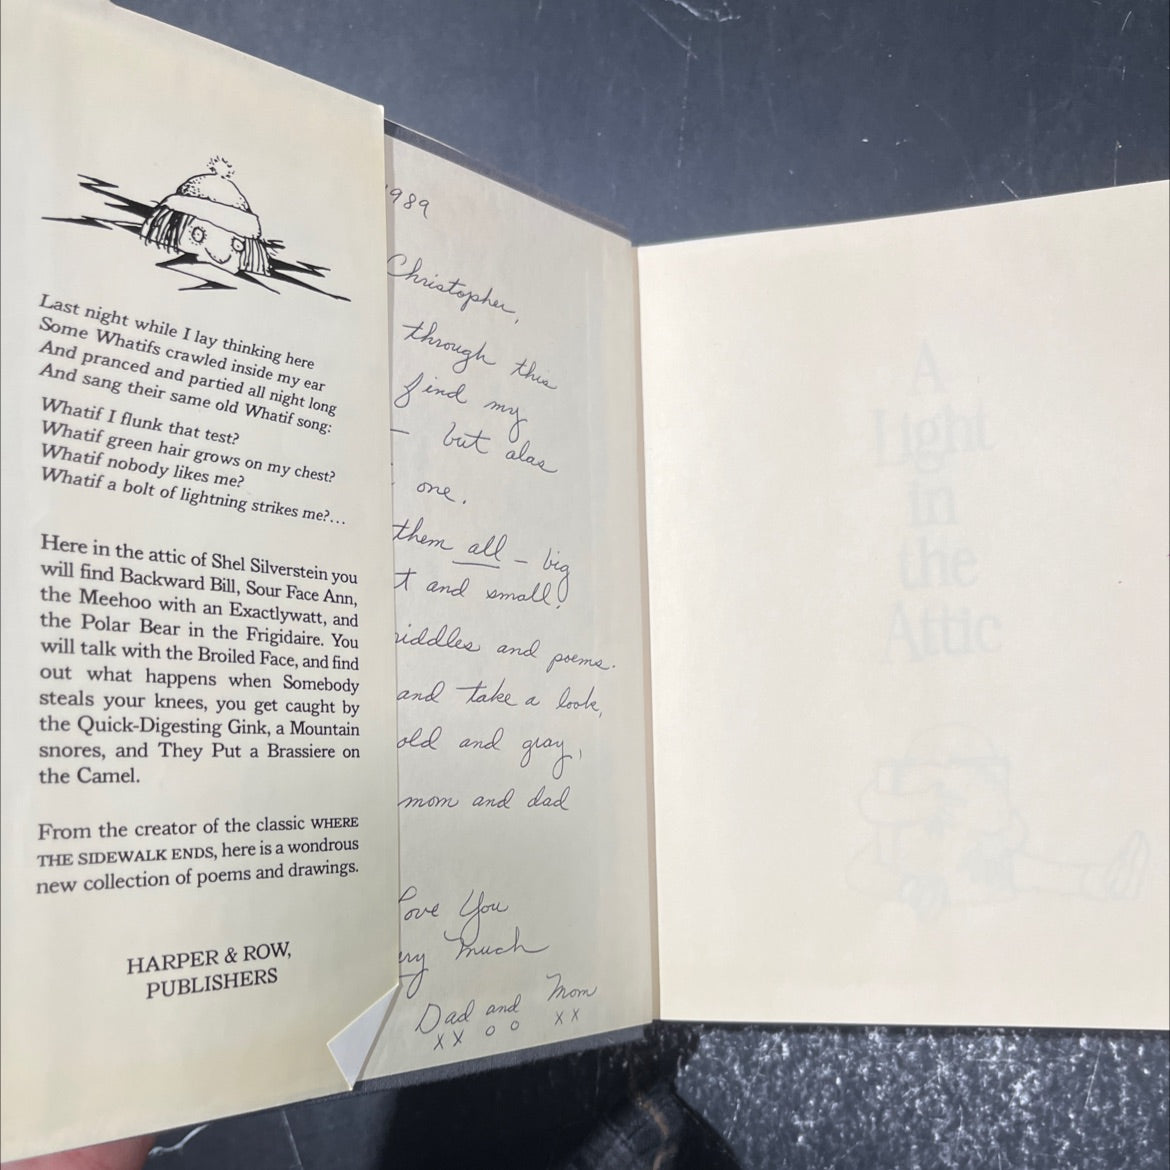 Last night while I lay thinking here
Some Whatifs crawled inside my ear
And pranced and partied all night long
And sang their same old Whatif song:
Whatif I flunk that test?
Whatif green hair grows on my chest?
Whatif nobody likes me?
Whatif a bolt of lightning strikes me?...
Here in the attic of Shel Silverstein you
will find Backward Bill, Sour Face Ann,
the Meehoo with an Exactlywatt, and
the Polar Bear in the Frigidaire. You
will talk with the Broiled Face, and find
out what happens when Somebody
steals your knees, you get caught by
the Quick-Digesting Gink, a Mountain
snores, and They Put a Brassiere on
the Camel.
From the creator of the classic WHERE
THE SIDEWALK ENDS, here is a wondrous
new collection of poems and drawings.
HARPER & ROW,
PUBLISHERS
989
Christopher,
through this
find my
— but alas
one.
them all – big
t and small!
riddles and poems.
and take a look,
old and gray,
mom and dad
Love You
ery Much
Dad and Mom
x x o o x x
A
Light
in
the
Attic